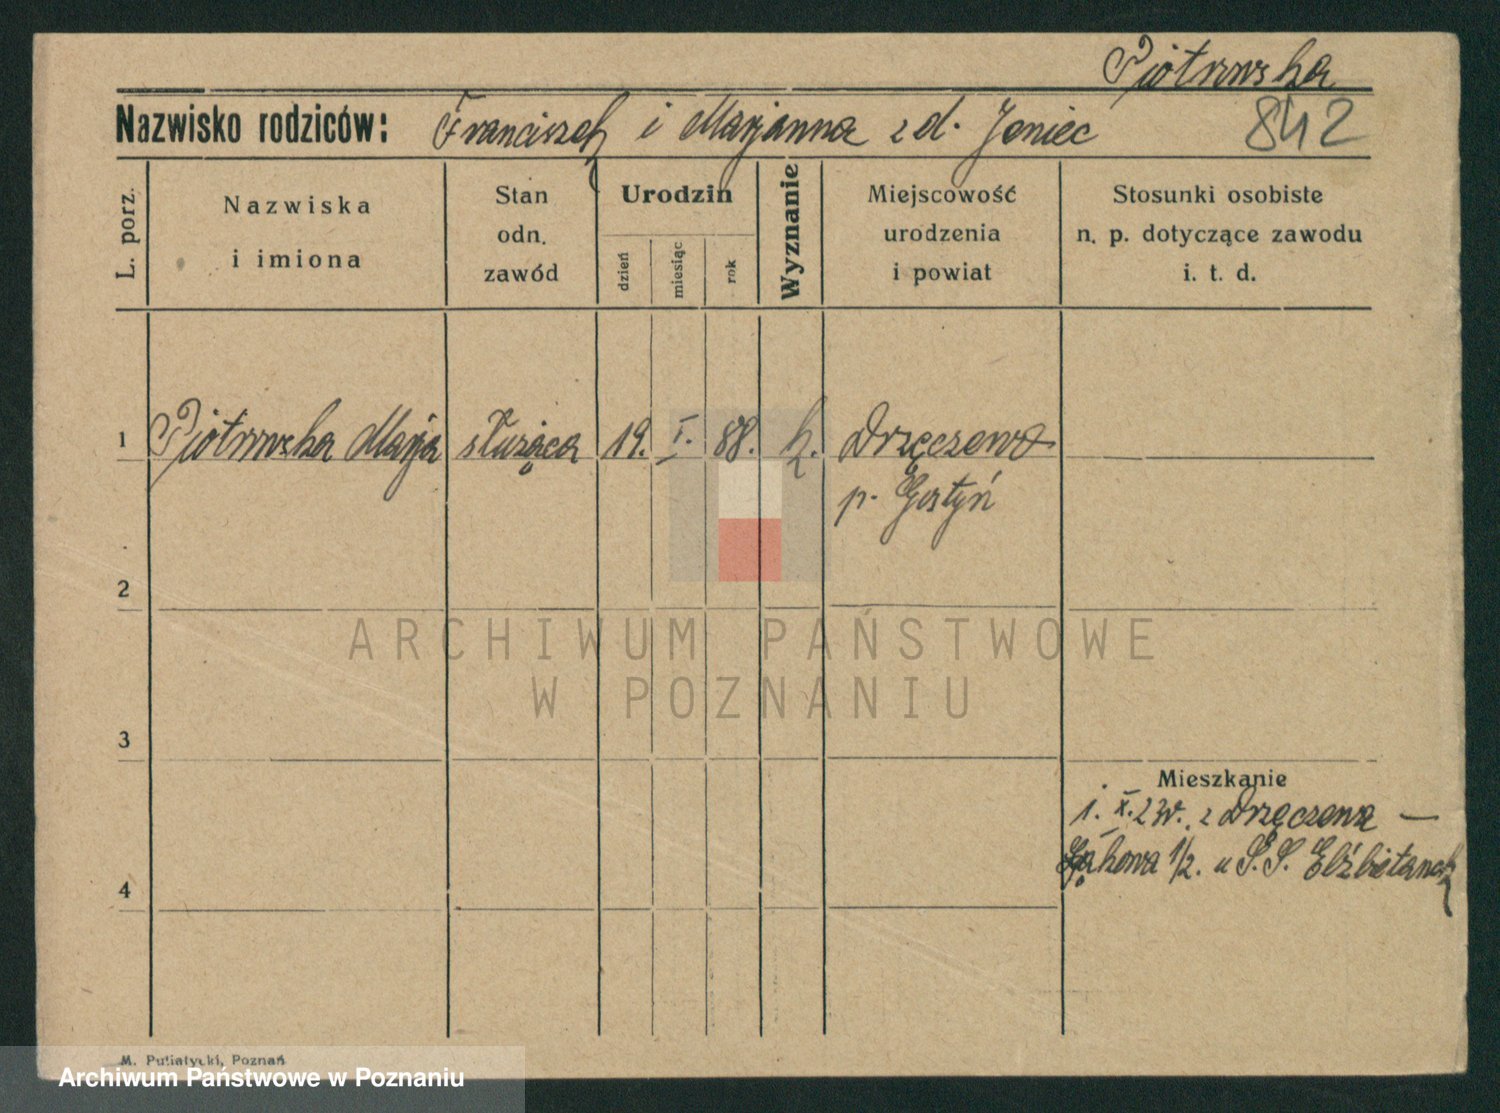 Piotrowska
Nazwisko rodziców: Franciszek i Marjanna z d. Joniec 842
L. porz.
Nazwiska
i imiona
Stan
odn.
zawód
Urodzin
dzień
miesiąc
rok
Wyznanie
Miejscowość
urodzenia
i powiat
Stosunki osobiste
n. p. dotyczące zawodu
i. t. d.
1 Piotrowska Marja służąca 19. I. 88. k. Drzęczewo
p. Gostyń
2
ARCHIWUM PAŃSTWOWE
W POZNANIU
3
Mieszkanie
1. X. 23r. z Drzęczewa —
Łąkowa 1/2. u S.S. Elżbietanek
4
M. Putiatycki, Poznań
Archiwum Państwowe w Poznaniu